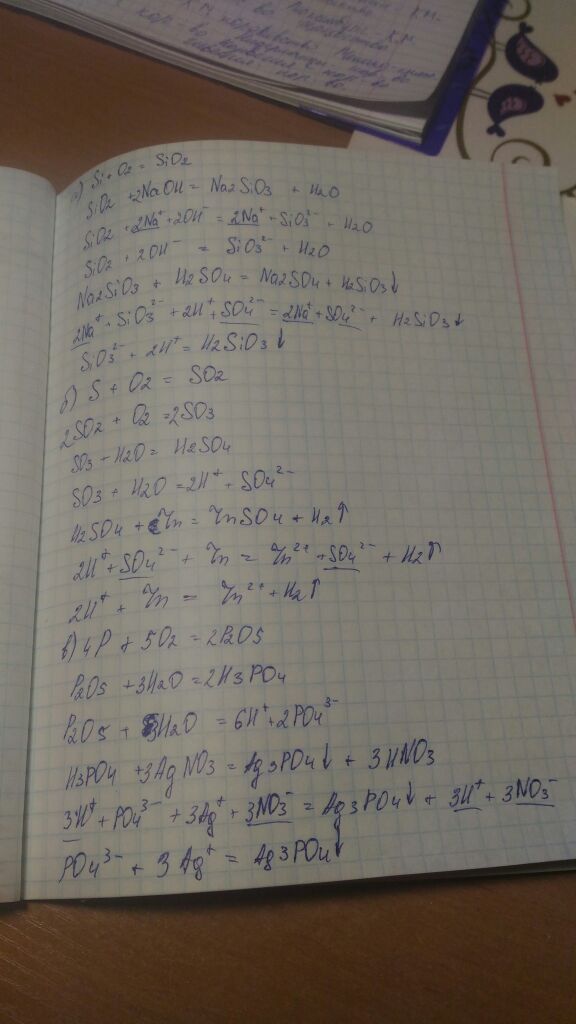 а) Si + O2 = SiO2
SiO2 + 2NaOH = Na2SiO3 + H2O
SiO2 + 2Na⁺ + 2OH⁻ = 2Na⁺ + SiO3²⁻ + H2O
SiO2 + 2OH⁻ = SiO3²⁻ + H2O
Na2SiO3 + H2SO4 = Na2SO4 + H2SiO3↓
2Na⁺ + SiO3²⁻ + 2H⁺ + SO4²⁻ = 2Na⁺ + SO4²⁻ + H2SiO3↓
SiO3²⁻ + 2H⁺ = H2SiO3↓
б) S + O2 = SO2
2SO2 + O2 = 2SO3
SO3 + H2O = H2SO4
SO3 + H2O = 2H⁺ + SO4²⁻
H2SO4 + Zn = ZnSO4 + H2↑
2H⁺ + SO4²⁻ + Zn = Zn²⁺ + SO4²⁻ + H2↑
2H⁺ + Zn = Zn²⁺ + H2↑
в) 4P + 5O2 = 2P2O5
P2O5 + 3H2O = 2H3PO4
P2O5 + 3H2O = 6H⁺ + 2PO4³⁻
H3PO4 + 3AgNO3 = Ag3PO4↓ + 3HNO3
3H⁺ + PO4³⁻ + 3Ag⁺ + 3NO3⁻ = Ag3PO4↓ + 3H⁺ + 3NO3⁻
PO4³⁻ + 3Ag⁺ = Ag3PO4↓